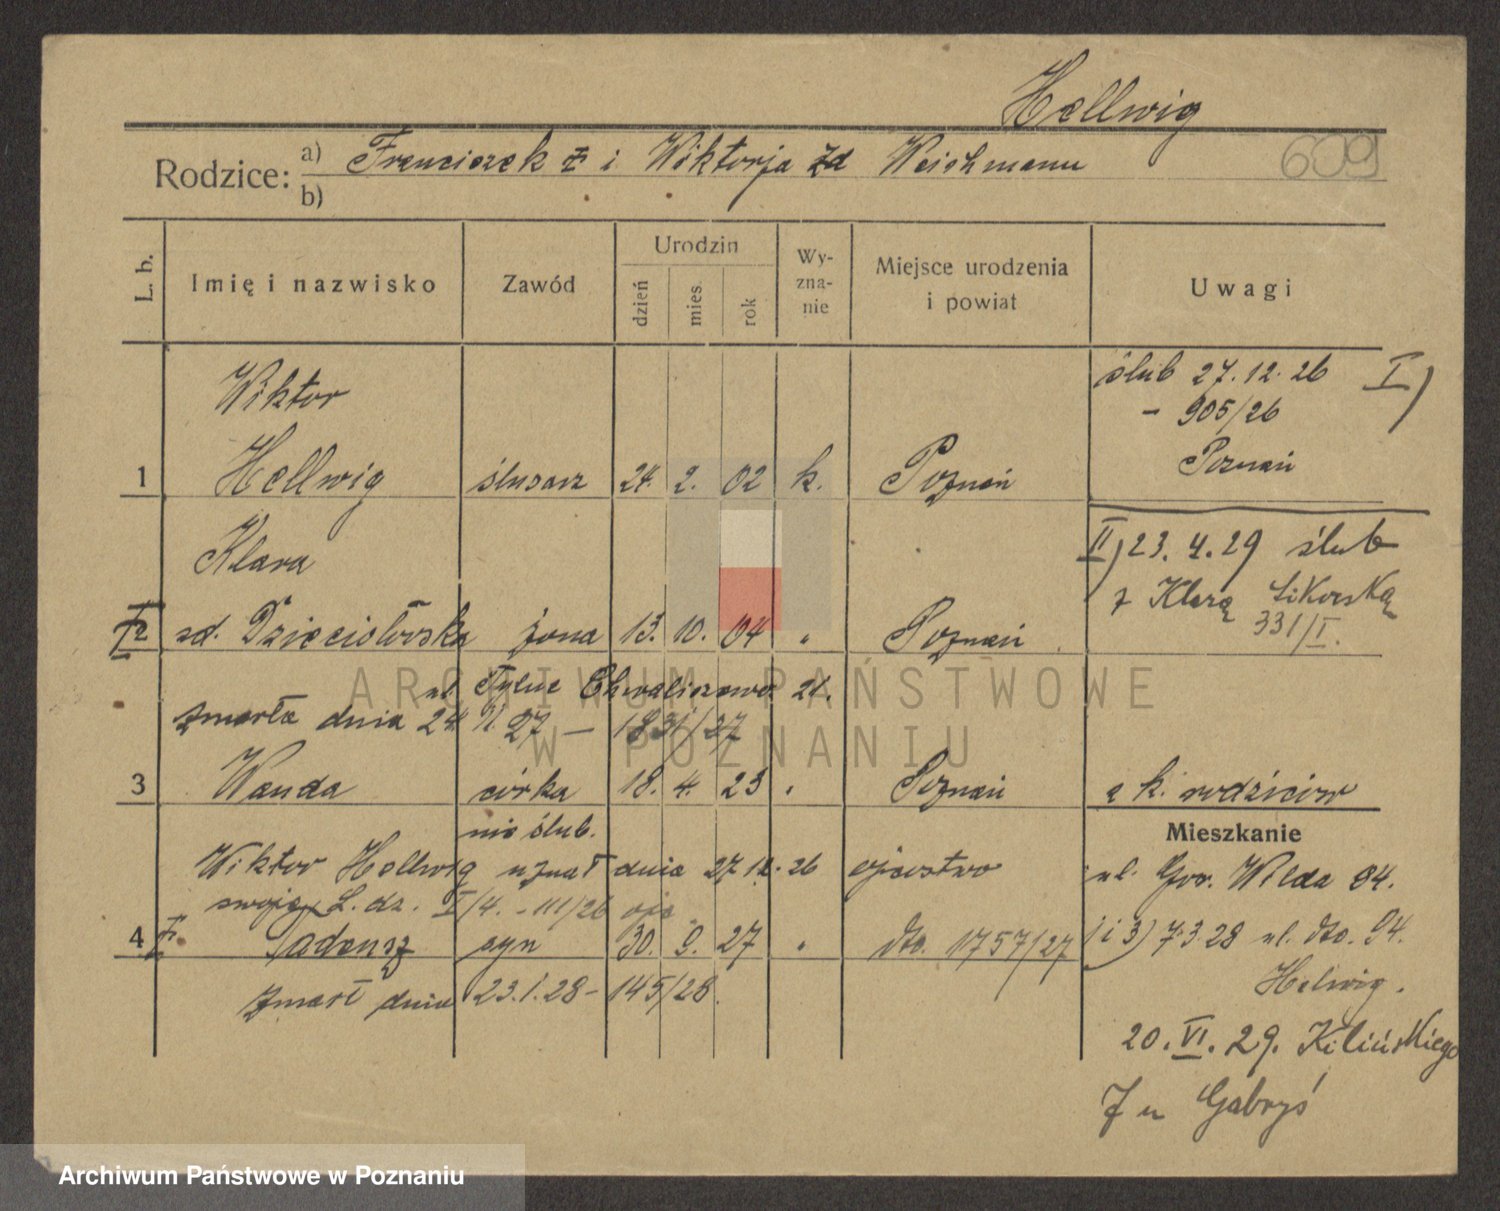 Hellwig
609
Rodzice: a) Franciszek ✝ i Wiktorja zd Weichmann
b)
L. b.
Imię i nazwisko
Zawód
Urodzin
dzień
mies.
rok
Wy-
zna-
nie
Miejsce urodzenia
i powiat
Uwagi
Wiktor
1 Hellwig ślusarz 24. 2. 02 k. Poznań
ślub 27.12.26 I)
- 905/26
Poznań
Klara
2 zd. Dzieciołowska żona 13. 10. 04 " Poznań
II) 23.4.29 ślub
z Klarą Sikorską
331/I.
ul. Tylne Chwaliszewo 21.
zmarła dnia 24. 27 — 1831/27
3 Wanda córka 18. 4. 23 " Poznań
k. rodziców
nie ślub.
Wiktor Hellwig uznał dnia 27.12.26 ojcostwo
swoje L. dz. I/4. - 111/26
4 Tadeusz syn 30. 9. 27 " dto. 1757/27
zmarł dnia 23.1.28 - 145/28.
Mieszkanie
ul. Gór. Wilda 84.
1 i 3) 7.3.28 ul. dto. 94.
Helwig.
20.VI.29. Kilińskiego
7 u Gabryś
ARCHIWUM PAŃSTWOWE
W POZNANIU
Archiwum Państwowe w Poznaniu